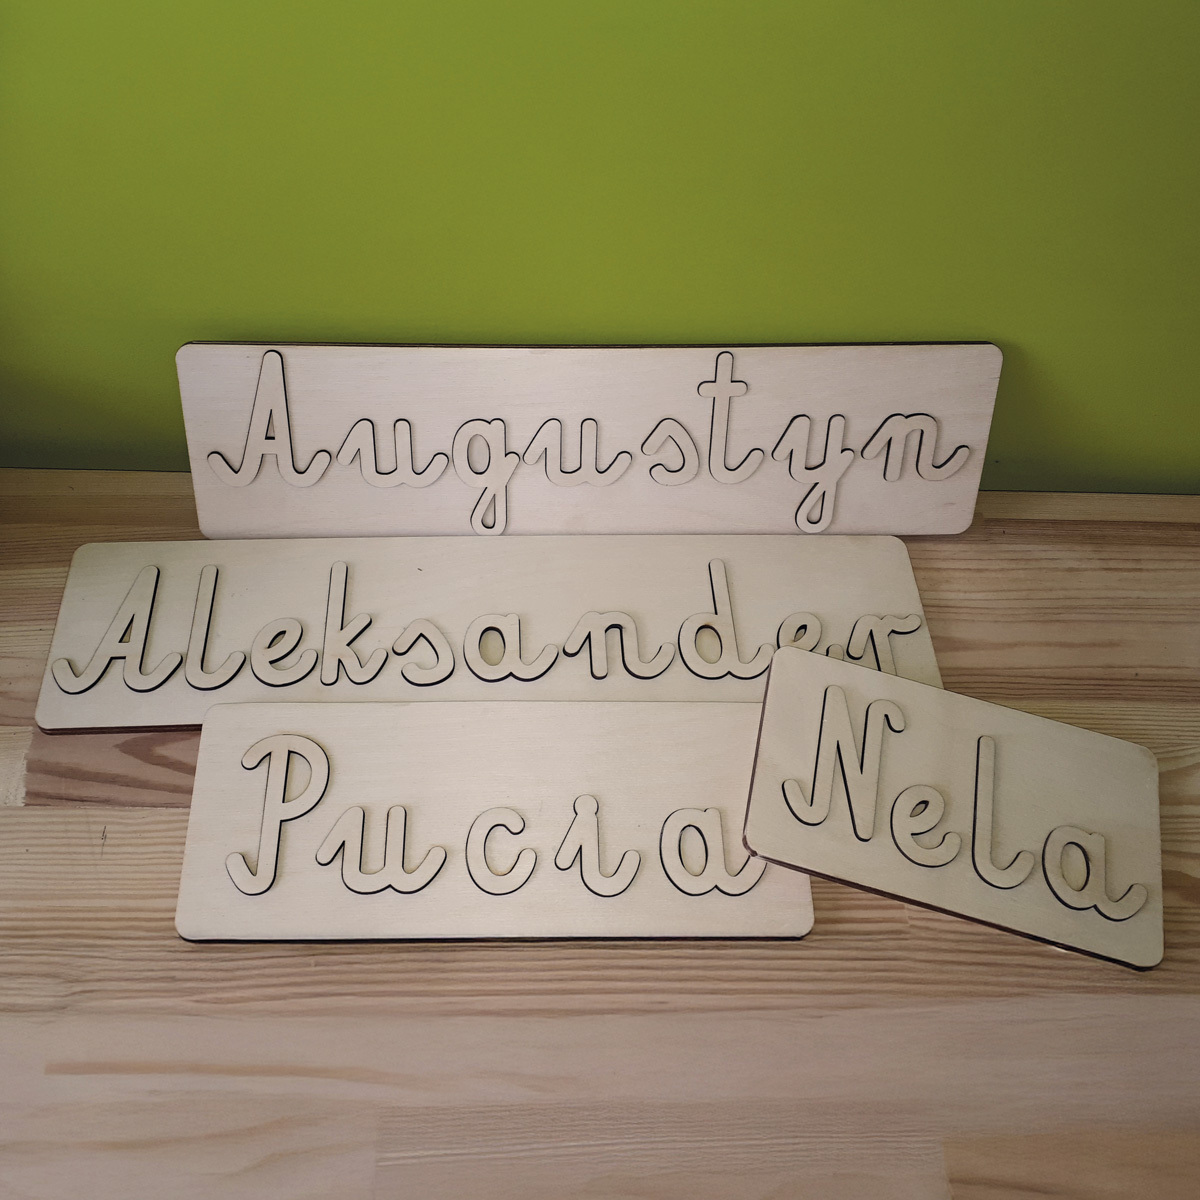 Augustyn
Aleksander
Pucia
Nela